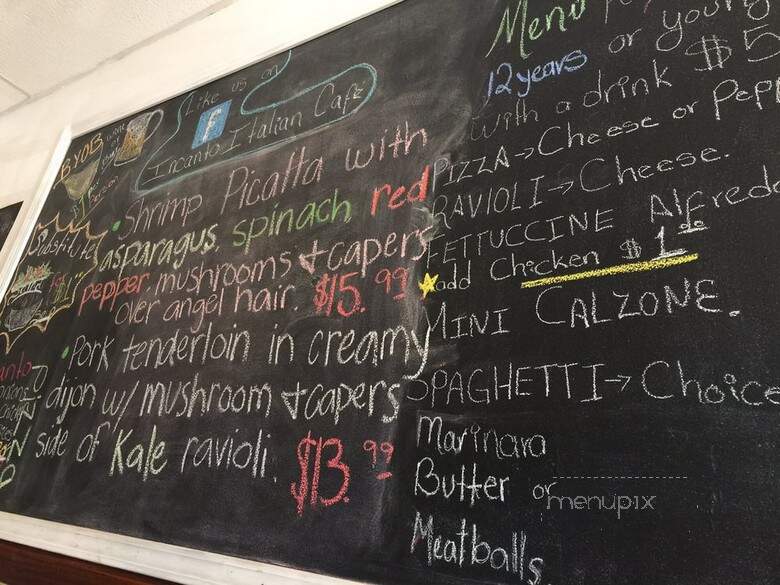 Like us on
f
Incanto Italian Cafe
BYOB
• Shrimp Picatta with
asparagus, spinach red
pepper, mushrooms & capers
over angel hair. $15.99
• Pork tenderloin in creamy
dijon w/ mushroom & capers
side of Kale ravioli. $13.99
Substitute
Menu
12 years or young
with a drink $5
PIZZA → Cheese or Pepp
RAVIOLI → Cheese.
FETTUCCINE Alfredo
add Chicken $1.00
MINI CALZONE.
SPAGHETTI → Choice
Marinara
Butter or
Meatballs
menupix